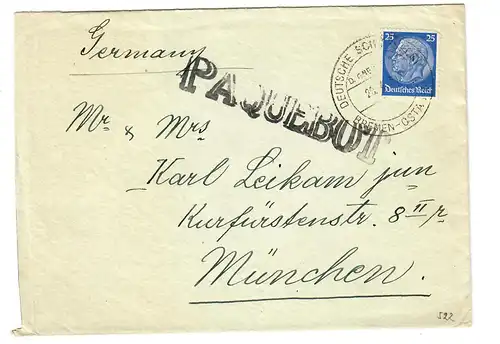 Germany
PAQUEBOT
DEUTSCHE
BREMEN-OSTA
25 25
Deutsches Reich
Mr & Mrs
Karl Leikam jun
Kurfürstenstr. 8 II r
München.
522